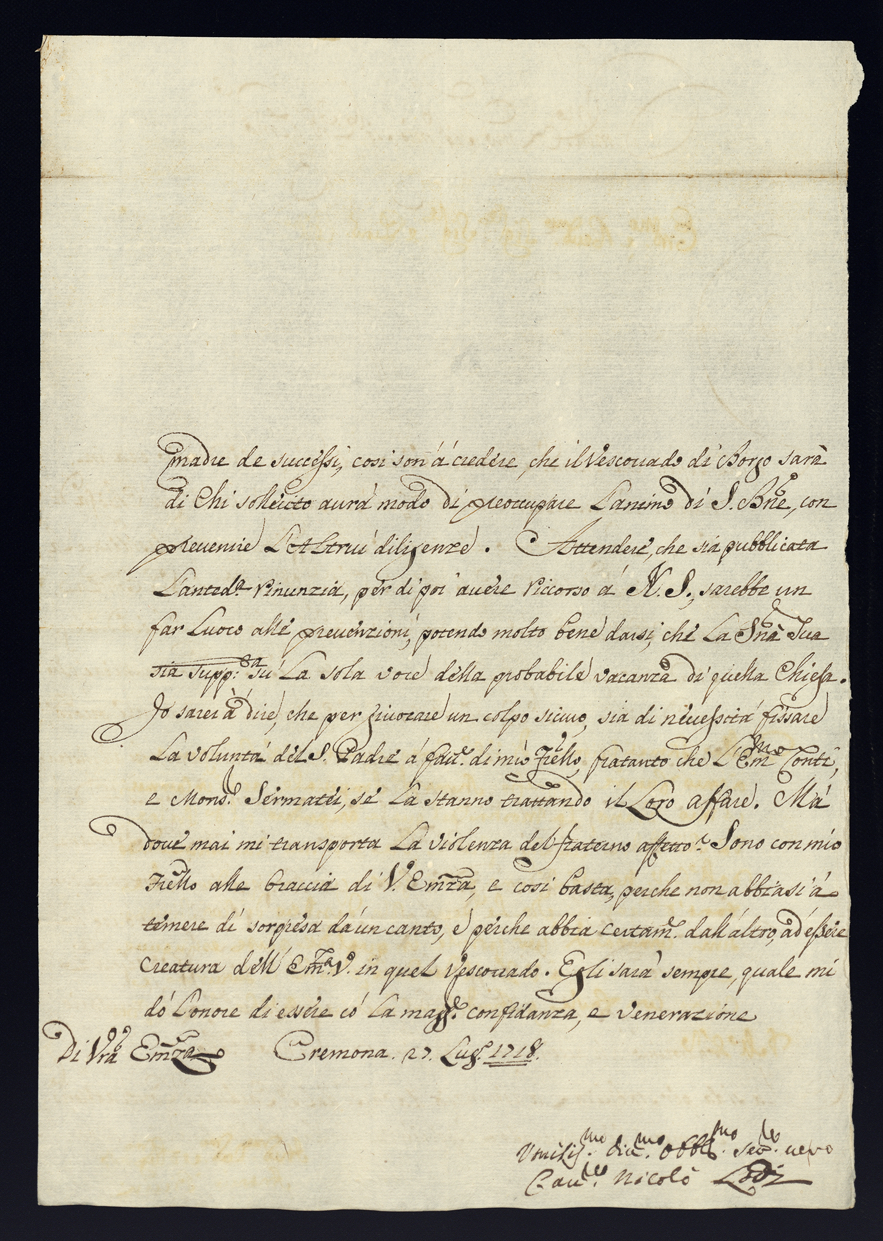 madre de successi, così son' à credere, che il Vescovado di Borgo sarà
di Chi sollecito avrà modo di preoccupare L'animo di S. Bne, con
prevenire L'Altrui diligenze. Attendere, che sia pubblicata
L'anteda rinunzia, per di poi avere riccorso à N. S., sarebbe un
far Luoco alle prevenzioni, potendo molto bene darsi, che La Sna Sua
sia supp:ta sù La sola voce della probabile vacanza di quella Chiesa.
Io sarei à dire, che per giuocare un colpo sicuro, sia di necessità fissare
La voluntà del S. Padre à favr. di mio Frello, fratanto che L'Emmo Conti,
e Monsr. Sermattei, se La stanno trattando il Loro affare. Mà
dove mai mi transporta La violenza del fraterno affetto? Sono con mio
Frello alle braccia di V. Emza, e così basta, perche non abbiasi à
temere di sorpresa da un canto, e perche abbia certamte. dall'altro, ad essere
Creatura dell' Emza V. in quel Vescovado. Egli sarà sempre, quale mi
dò L'onore di essere co' La magre. confidanza, e venerazione
Di Vra Emza Cremona. 27. Lugo. 1718.
Umilismo. divmo. obblmo. serre. vero
Cavre. Nicolò Lodi